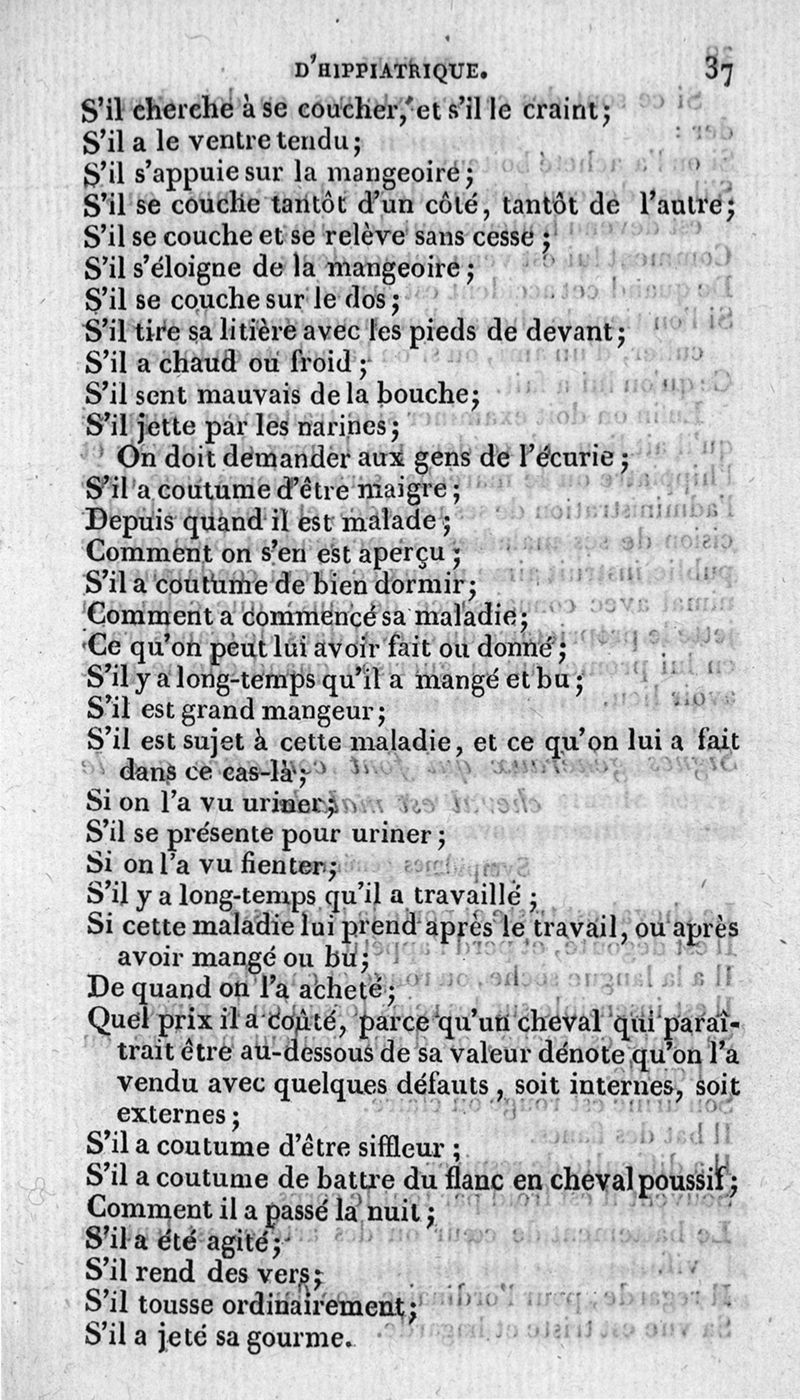 D'HIPPIATRIQUE. 37
S'il cherche à se coucher, et s'il le craint;
S'il a le ventre tendu;
S'il s'appuie sur la mangeoire;
S'il se couche tantôt d'un côté, tantôt de l'autre;
S'il se couche et se relève sans cesse;
S'il s'éloigne de la mangeoire;
S'il se couche sur le dos;
S'il tire sa litière avec les pieds de devant;
S'il a chaud ou froid;
S'il sent mauvais de la bouche;
S'il jette par les narines;
On doit demander aux gens de l'écurie;
S'il a coutume d'être maigre;
Depuis quand il est malade;
Comment on s'en est aperçu;
S'il a coutume de bien dormir;
Comment a commencé sa maladie;
Ce qu'on peut lui avoir fait ou donné;
S'il y a long-temps qu'il a mangé et bu;
S'il est grand mangeur;
S'il est sujet à cette maladie, et ce qu'on lui a fait
dans ce cas-là;
Si on l'a vu uriner;
S'il se présente pour uriner;
Si on l'a vu fienter;
S'il y a long-temps qu'il a travaillé;
Si cette maladie lui prend après le travail, ou après
avoir mangé ou bu;
De quand on l'a acheté;
Quel prix il a coûté, parce qu'un cheval qui paraî-
trait être au-dessous de sa valeur dénote qu'on l'a
vendu avec quelques défauts, soit internes, soit
externes;
S'il a coutume d'être siffleur;
S'il a coutume de battre du flanc en cheval poussif;
Comment il a passé la nuit;
S'il a été agité;
S'il rend des vers;
S'il tousse ordinairement;
S'il a jeté sa gourme.